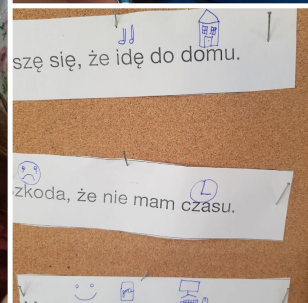 szę się, że idę do domu.
zkoda, że nie mam czasu.